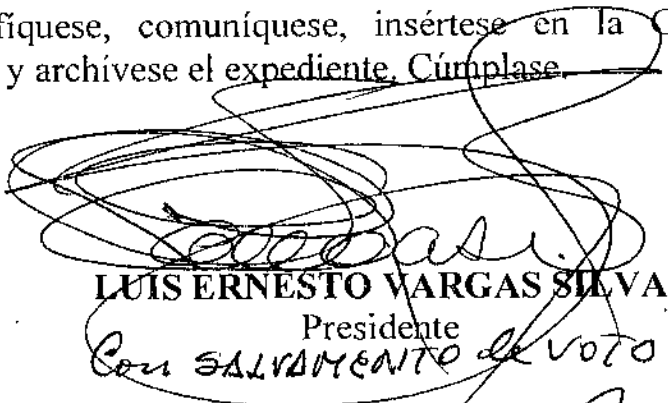 fíquese, comuníquese, insértese en la
y archívese el expediente. Cúmplase.
LUIS ERNESTO VARGAS SILVA
Presidente
Con SALVAMENTO de VOTO